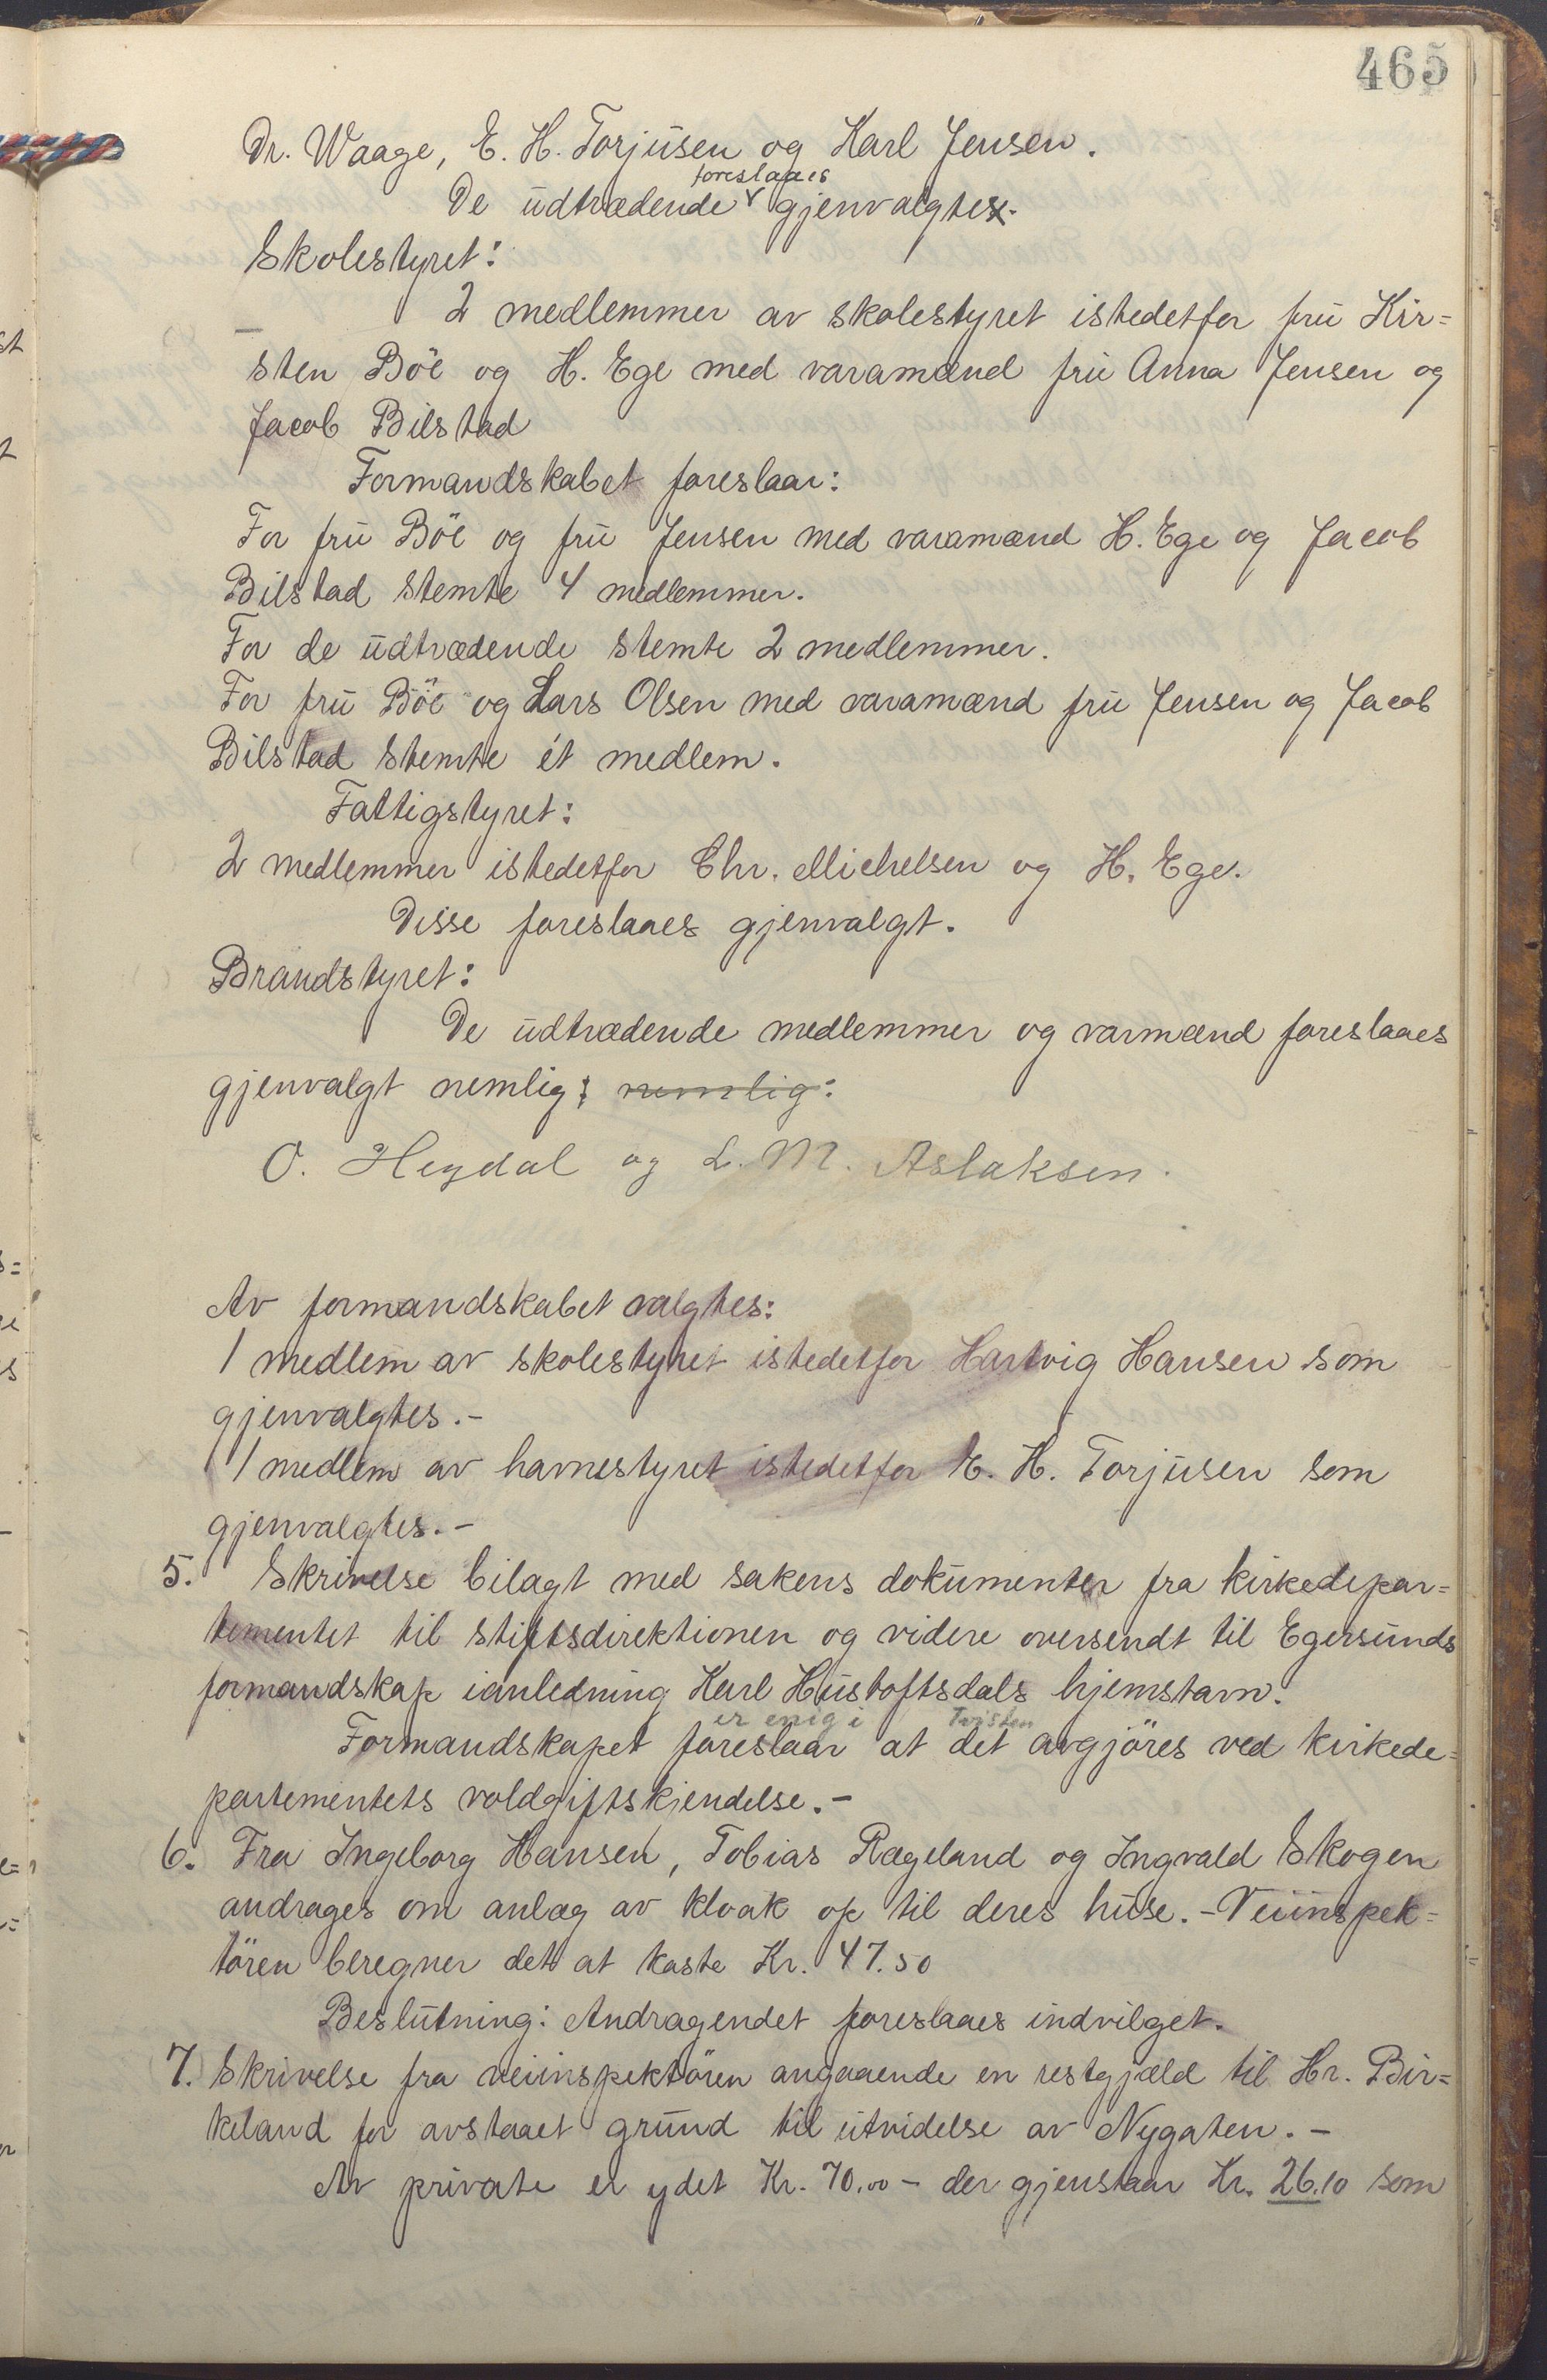 465
Dr. Waage, E. H. Torjusen og Karl Jensen.
foreslaaes
De udtrædende gjenvalgtes.
Skolestyret:
2 medlemmer av skolestyret istedetfor fru Kir=
sten Böe og H. Ege med varamænd fru Anna Jensen og
Jacob Bilstad
Formandskabet foreslaar:
For fru Böe og fru Jensen med varamænd H. Ege og Jacob
Bilstad stemte 4 medlemmer.
For de udtrædende stemte 2 medlemmer.
For fru Böe og Lars Olsen med varamænd fru Jensen og Jacob
Bilstad stemte ét medlem.
Fattigstyret:
2 medlemmer istedetfor Chr. Michelsen og H. Ege.
Disse foreslaaes gjenvalgt.
Brandstyret:
De udtrædende medlemmer og varmænd foreslaaes
gjenvalgt nemlig: nemlig:
O. Hegdal og L. M. Aslaksen.
Av formandskabet valgtes:
1 medlem av skolestyret istedetfor Hartvig Hansen som
gjenvalgtes.-
1 medlem av havnestyret istedetfor E. H. Torjusen som
gjenvalgtes.-
5. Skrivelse bilagt med sakens dokumenter fra kirkedepar=
tementet til stiftsdirektionen og videre oversendt til Egersunds
formandskap ianledning Karl Hustoftsdals hjemstavn.
er enig i Tvisten
Formandskapet foreslaar at det avgjöres ved kirkede=
partementets voldgiftskjendelse.-
6. Fra Ingeborg Hansen, Tobias Rægeland og Ingvald Skogen
andrages om anlæg av kloak op til deres huse. - Veiinspek=
tören beregner det at koste Kr. 47.50
Beslutning: Andragendet foreslaaes indvilget.
7. Skrivelse fra veiinspektören angaaende en restgjæld til Hr. Bir=
keland for avstaaet grund til utvidelse av Nygaten. -
Av private er ydet Kr. 70.00 - der gjenstaar Kr. 26.10 som